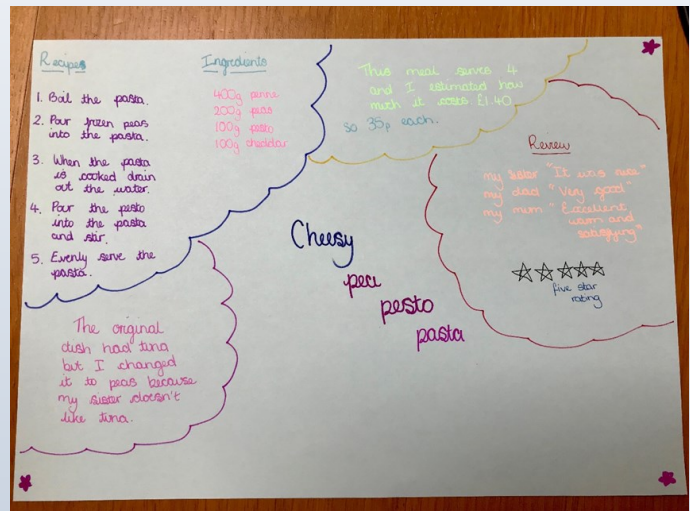 Recipes
1. Boil the pasta.
2. Pour frozen peas
into the pasta.
3. When the pasta
is cooked drain
out the water.
4. Pour the pesto
into the pasta
and stir.
5. Evenly serve the
pasta.
Ingredients
400g penne
200g peas
100g pesto
100g cheddar
This meal serves 4
and I estimated how
much it costs. £1.40
so 35p each.
Review
my sister "It was nice"
my dad "Very good"
my mum "Excellent
warm and
satisfying"
five star
rating
Cheesy
pea
pesto
pasta
The original
dish had tuna
but I changed
it to peas because
my sister doesn't
like tuna.